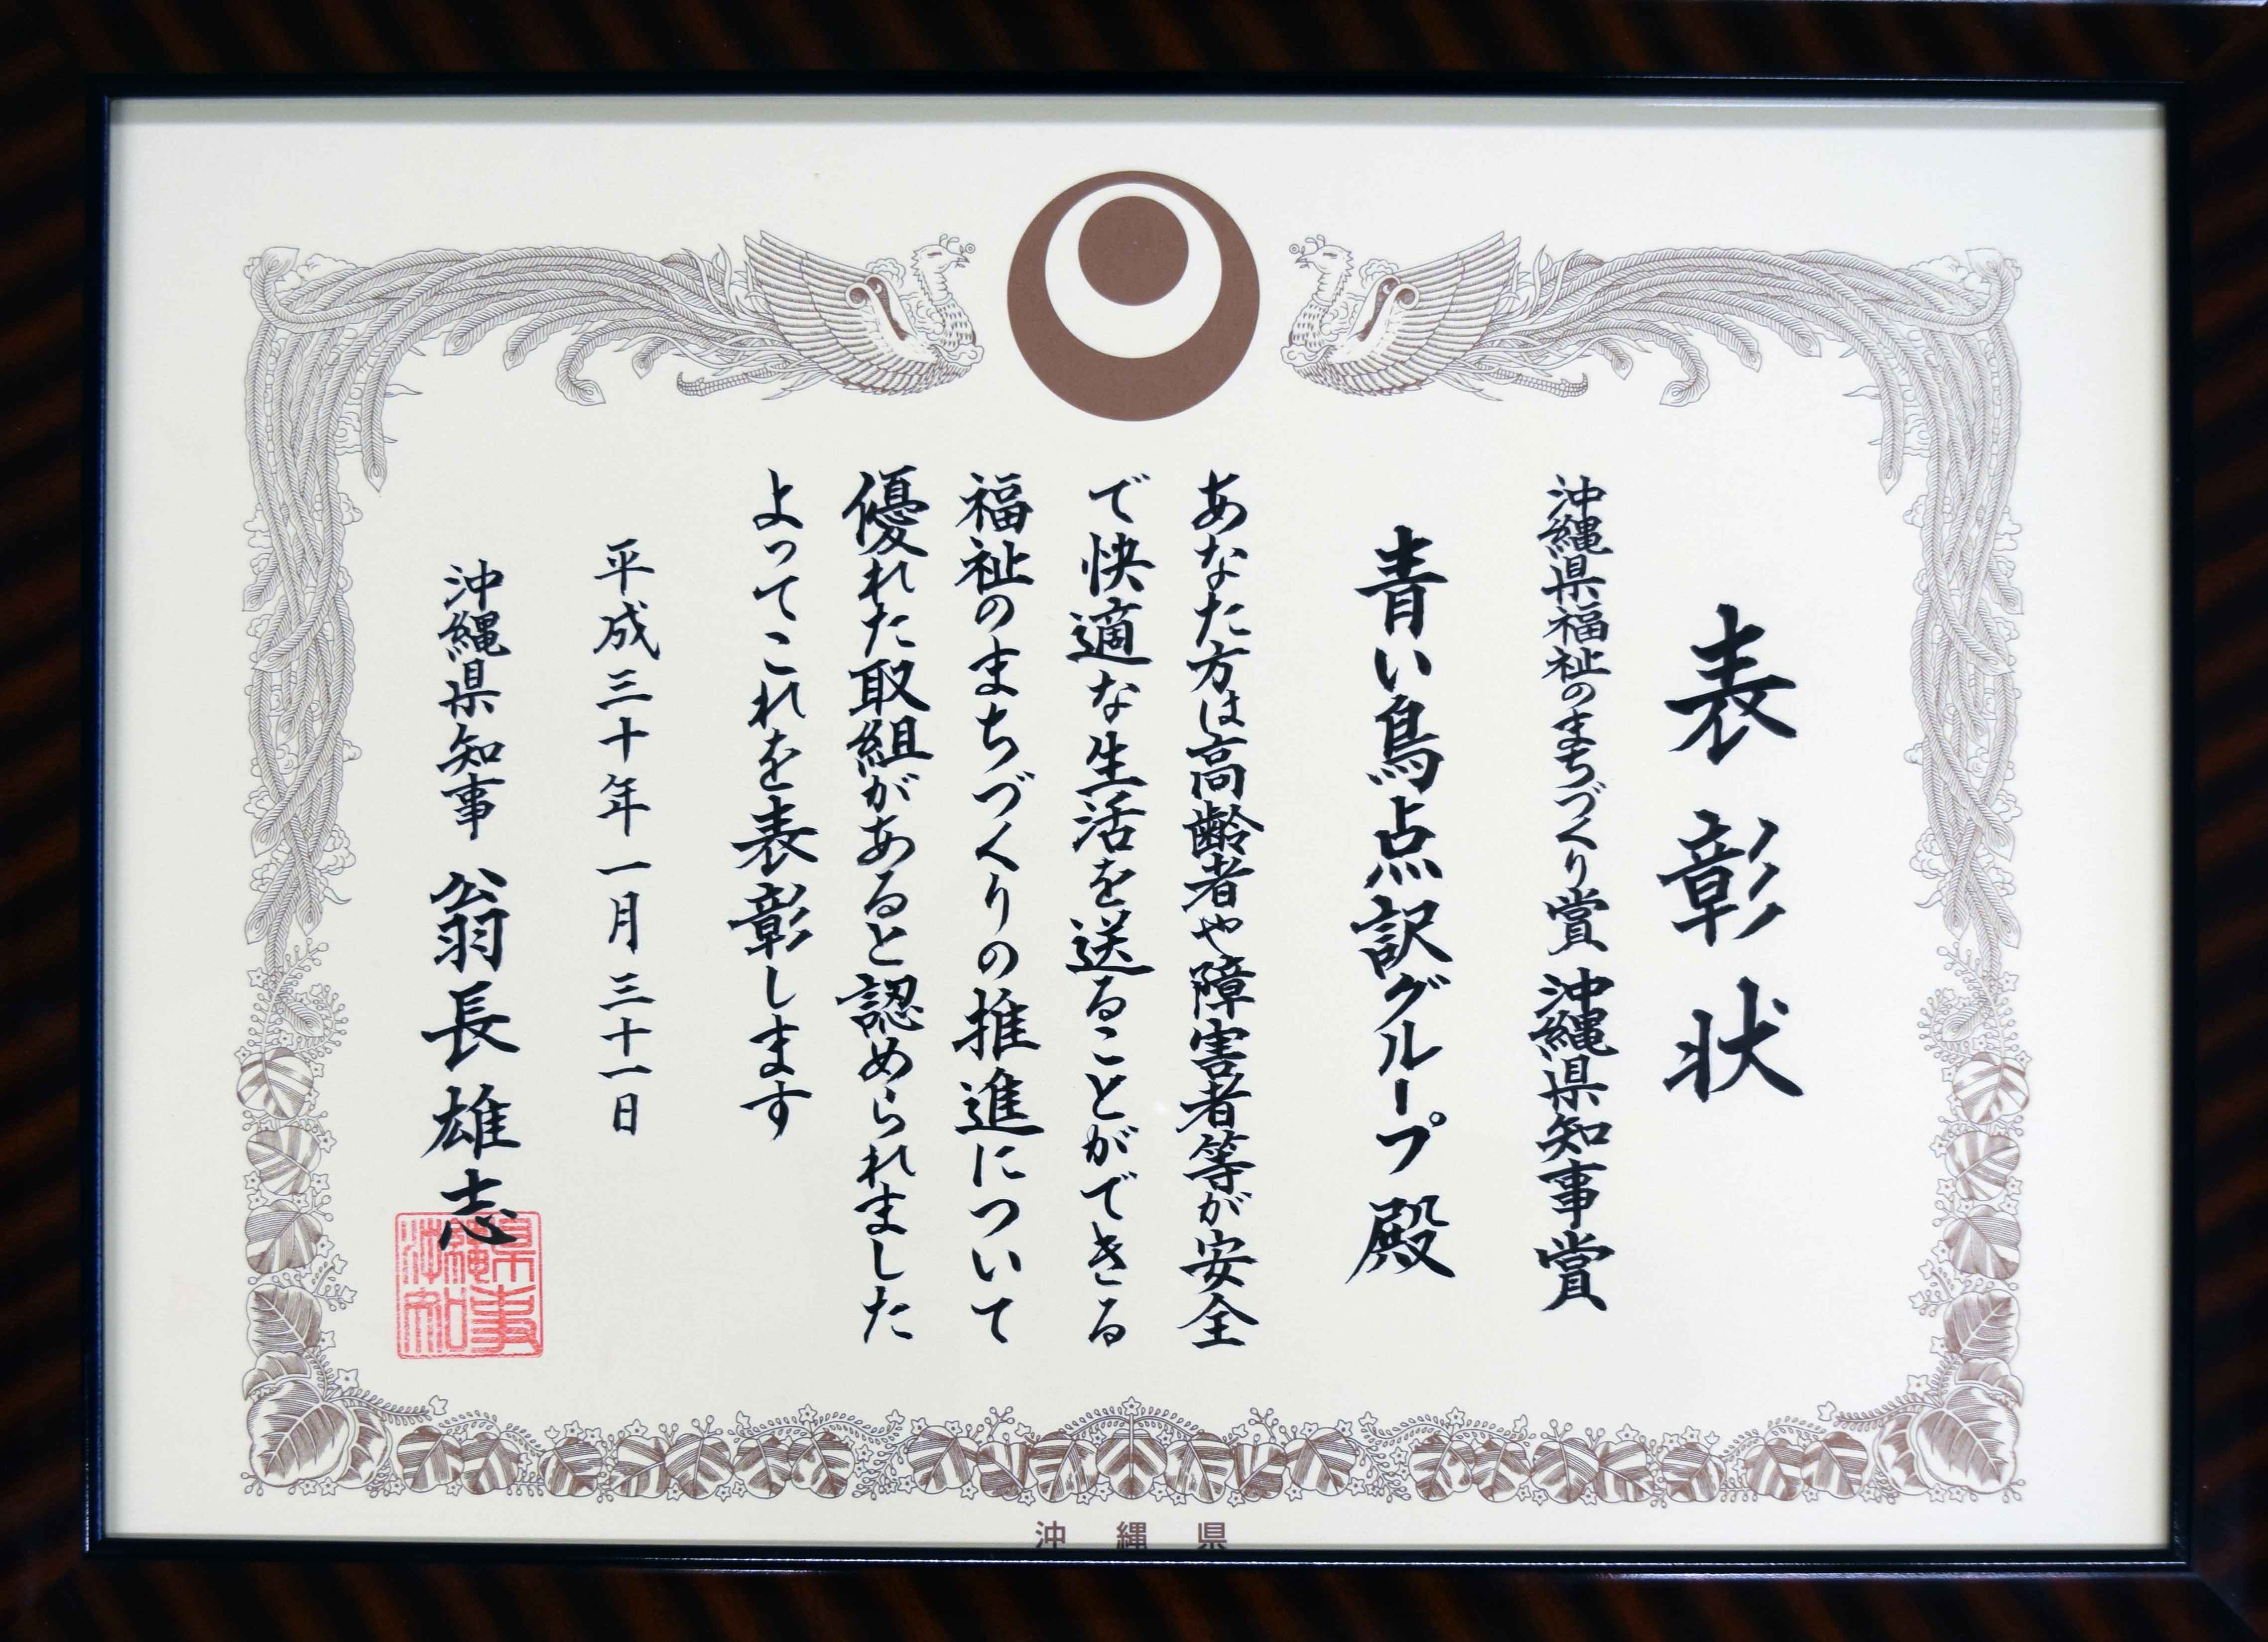 表彰状
沖縄県福祉のまちづくり賞 沖縄県知事賞
青い鳥点訳グループ 殿
あなた方は高齢者や障害者等が安全
で快適な生活を送ることができる
福祉のまちづくりの推進について
優れた取組があると認められました
よってこれを表彰します
平成三十年一月三十一日
沖縄県知事 翁長雄志
沖縄県知事
沖縄県